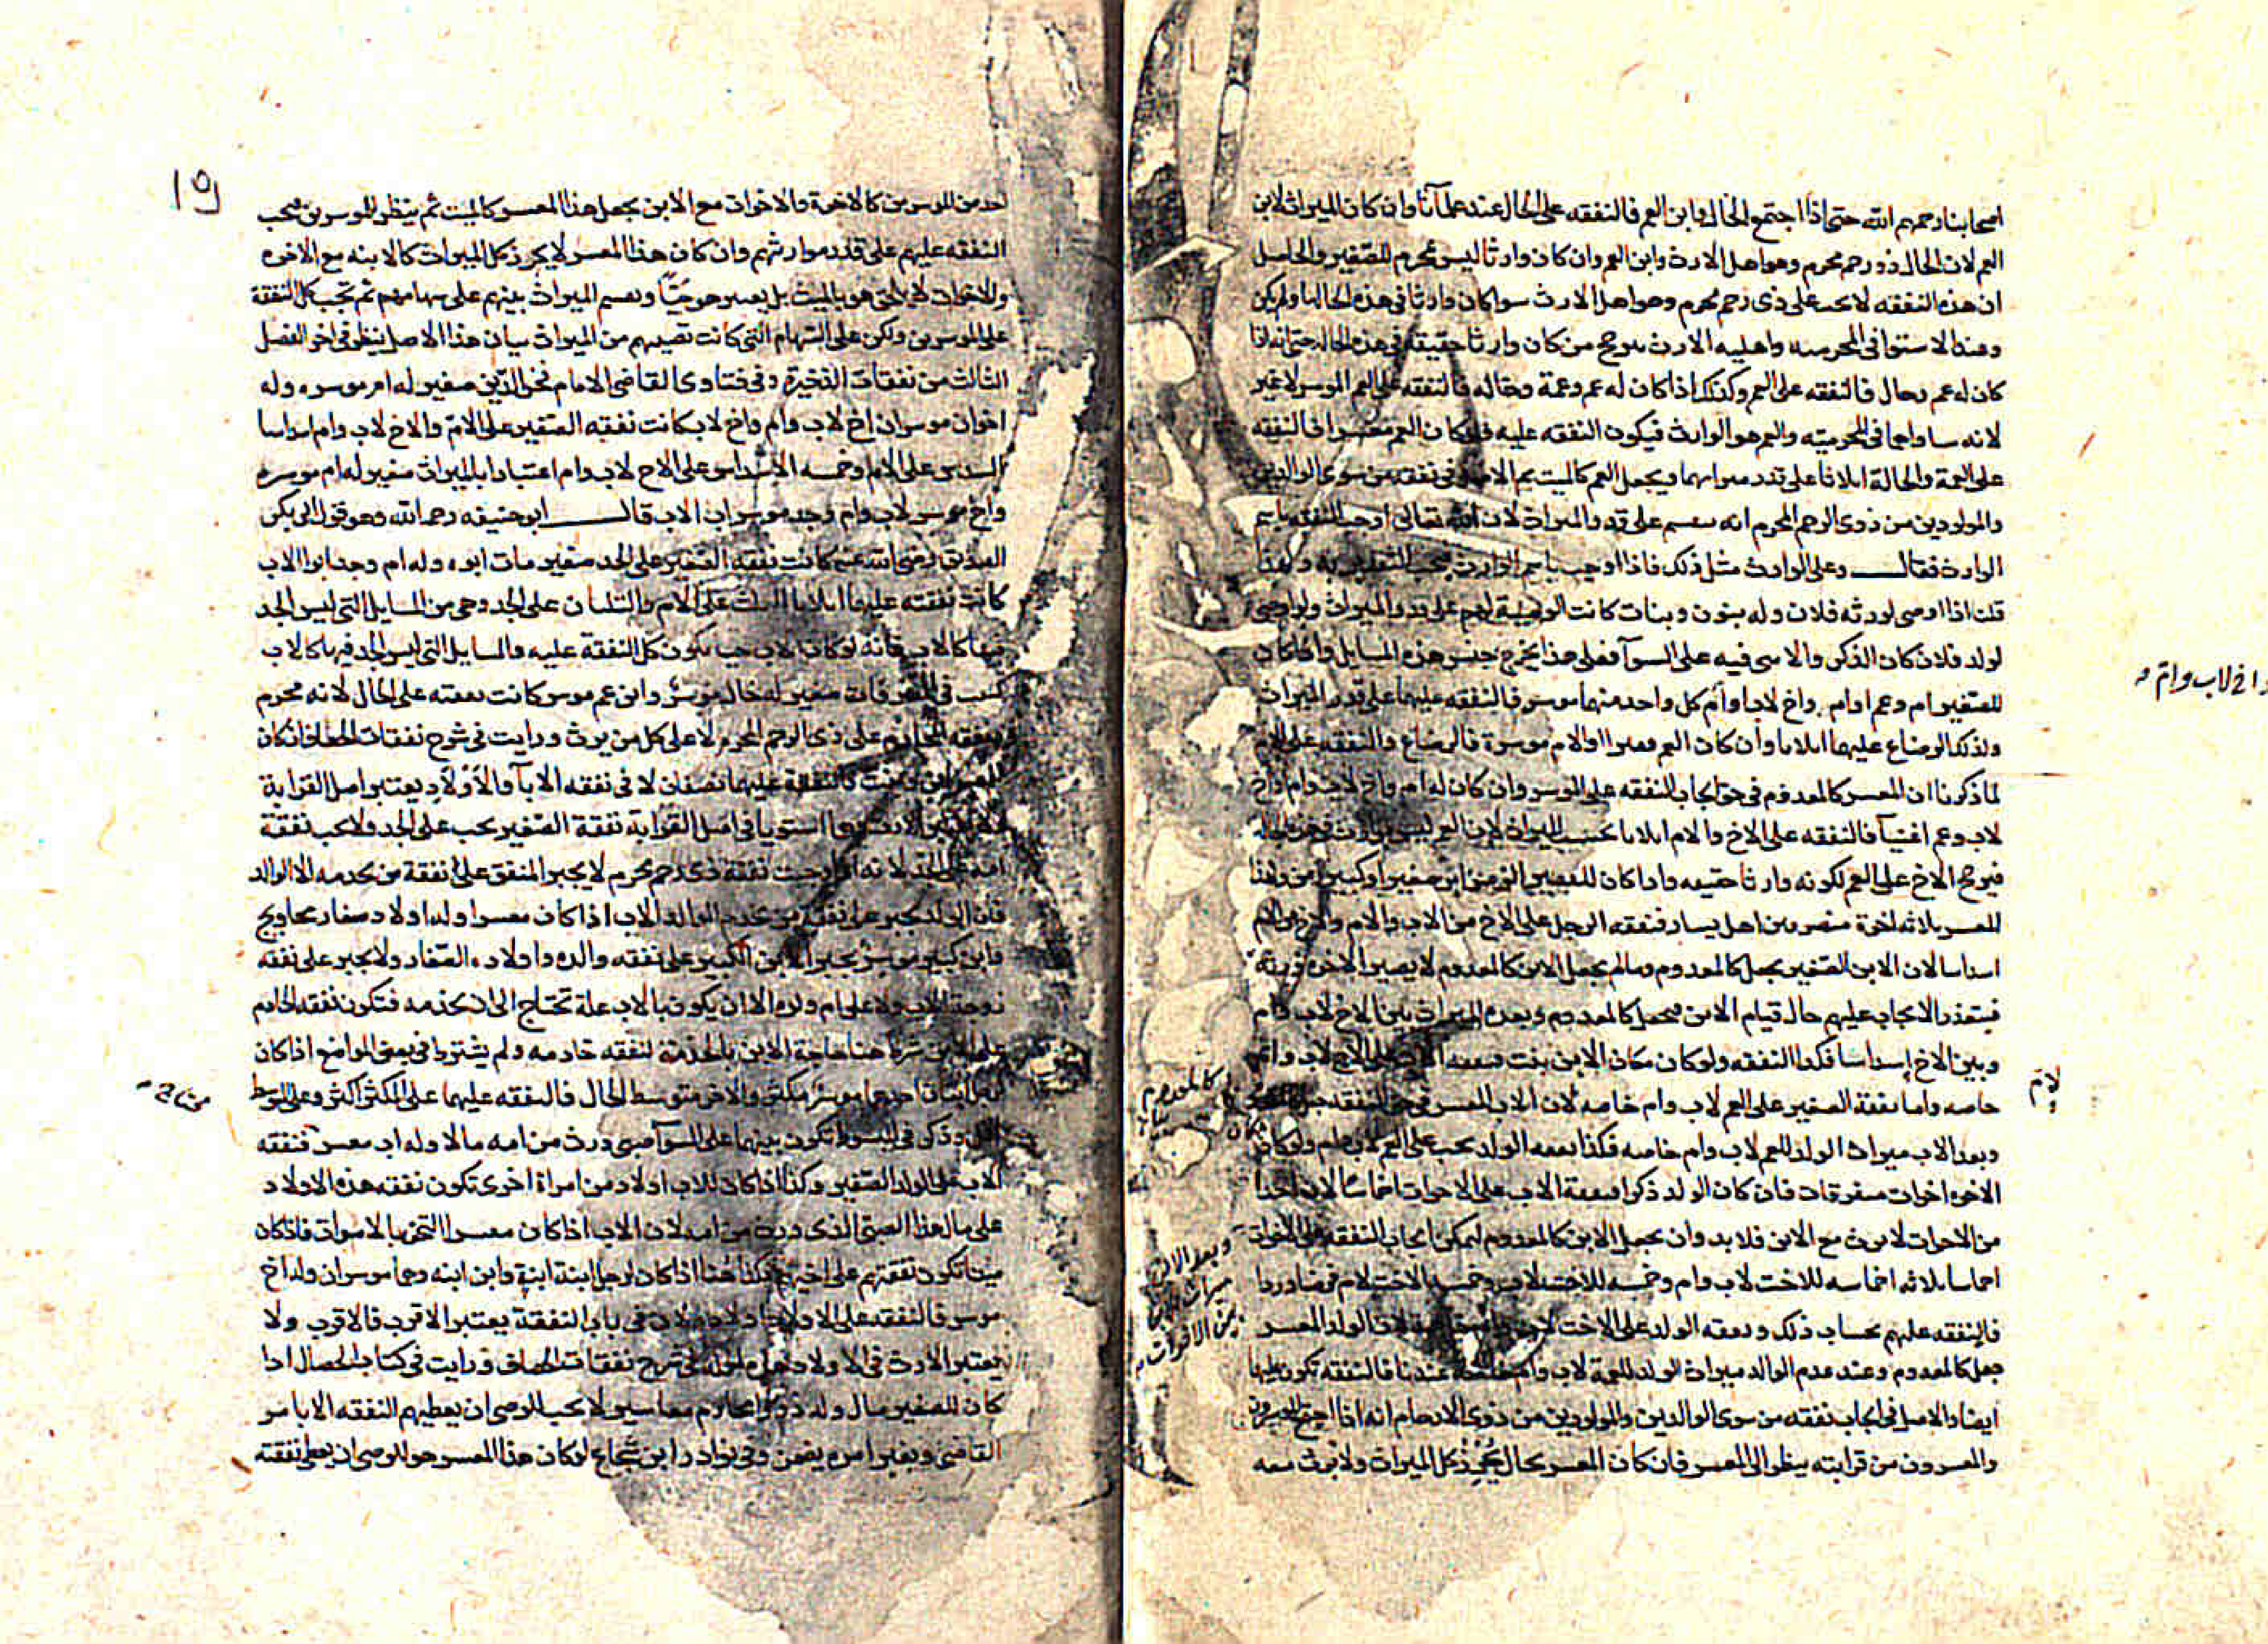 اصحابنا رحمهم الله حتى اذا اجتمع الخال وابن العم فالنفقه على الخال عند علمآئنا وان كان الميراث لابن
العم لان الخال ذو رحم محرم وهو اهل الارث وابن العم وان كان وارثا ليس بمحرم للصغير والحاصل
ان هذه النفقه لا تجب على ذى رحم محرم وهو اهل الارث سوا كان وارثا فى هذه الحاله او لم يكن
وعند الاستوا فى المحرميه واهليه الارث يرجح من كان وارثا حقيقة فى هذه الحاله حتى انه اذا
كان له عم وخال فالنفقه على العم وكذلك اذا كان له عم وعمة وخاله فالنفقه على العم الموسر لا غير
لانه ساواهما فى المحرميه والعم هو الوارث فيكون النفقه عليه فلو كان العم معسرا فالنفقه
على العمة والخالة اثلاثا على قدر ميراثهما ويجعل العم كالميت ثم الاصل فى نفقه من سوى الوالدين
والمولودين من ذوى الرحم المحرم انه يقسم على قدر الميراث لان الله تعالى اوجب النفقه باسم
الوارث فقال وعلى الوارث مثل ذلك فاذا اوجب باسم الوارث يجب التقدير به ولهذا
قلنا اذا اوصى لورثه فلان وله بنون وبنات كانت الوصية لهم على قدر الميراث ولو اوصى
لولد فلان كان الذكر والانثى فيه على السوآ فعلى هذا يخرج جنس هذه المسايل واذا كان
للصغير ام وعم او ام واخ لاب وام كل واحد منهما موسر فالنفقه عليهما على قدر الميراث
واخ لاب وام
وكذلك الرضاع عليهما اثلاثا وان كان العم فقيرا والام موسرة فالرضاع والنفقه على الام
لما ذكرنا ان المعسر كالمعدوم فى حق ايجاب النفقه على الموسر وان كان له ام واخ لاب وام واخ
لاب وعم اغنيآ فالنفقه على الاخ والام اثلاثا بحسب الميراث لان العم ليس بوارث فى هذه الحاله
فيرجح الاخ على العم لكونه وارثا حقيقه واذا كان للفقير الزمن ابن صغير او كبير زمن ولهذا
المعسر ثلاثه اخوة متفرقين اهل يسار فنفقه الرجل على الاخ من الاب والام والاخ من الام
اسداسا لان الابن الصغير يجعل كالمعدوم وما لم يجعل الابن كالمعدوم لا يصير الاخوه ورثة
فيتعذر الايجاب عليهم حال قيام الابن فيجعل كالمعدوم وبعده الميراث بين الاخ لاب وام
وبين الاخ لام اسداسا فكذا النفقه ولو كان مكان الابن بنت فنفقه الاب على الاخ لاب وام
خاصه واما نفقة الصغير على العم لاب وام خاصه لان الاب المعسر فى حق النفقه جعل كالمعدوم
وبعد الاب ميراث الولد للعم لاب وام خاصه فكذا نفقه الولد تجب على العم لاب وام ولو كان مكان
الاخوه اخوات متفرقات فان كان الولد ذكرا فنفقة الاب على الاخوات اخماسا لان احدا
من الاخوات لا يرث مع الابن فلا بد وان يجعل الابن كالمعدوم ليمكن ايجاب النفقه على الاخوات
وبعد الابن
ميراث الاب
بين الاخوات
اخماسا ثلاثه اخماسه للاخت لاب وام وخمسه للاخت لاب وخمسه للاخت لام فرضا وردا
فالنفقه عليهم بحساب ذلك ونفقه الولد على الاخت لاب وام خاصة لان الوالد المعسر
جعل كالمعدوم وعند عدم الوالد ميراث الولد للعمة لاب وام خاصة عندنا فالنفقه تكون عليها
ايضا والاصل فى ايجاب نفقه من سوى الوالدين والمولودين من ذوى الارحام انه اذا اجتمع الموسرون
والمعسرون من قرابته ينظر الى المعسر فان كان المعسر بحال يحرز كل الميراث ولا يرث معه
19
احد من الموسرين كالاخوة والاخوات مع الابن يجعل هذا المعسر كالميت ثم ينظر للموسرين فتجب
النفقه عليهم على قدر مواريثهم وان كان هذا المعسر لا يحرز كل الميراث كالابنه مع الاخوه
والاخوات لا يلحق هو بالميت بل يعتبر هو حيّا ويقسم الميراث بينهم على سهامهم ثم تجب كل النفقة
على الموسرين ولكن على السهام التى كانت تصيبهم من الميراث بيان هذا الاصل ينظر فى اخر الفصل
الثالث من نفقات الذخيرة وفى فتاوى القاضى الامام فخر الدّين صغير له ام موسره وله
اخوان موسران اخ لاب وام واخ لاب كانت نفقه الصغير على الامّ والاخ لاب وام اسداسا
السدس على الام وخمسه الاسداس على الاخ لاب وام اعتبارا بالميراث صغير له ام موسره
واخ موسر لاب وام وجد موسر اب الاب قال ابو حنيفه رحمه الله وهو قول ابى بكر
الصديق رضى الله عنه كانت نفقه الصغير على الجد صغير مات ابوه وله ام وجد ابو الاب
كانت نفقته عليهما اثلاثا الثلث على الام والثلثان على الجد وهى من المسايل التى ليس الجد
فيها كالاب فانه لو كان الاب حيا يكون كل النفقة عليه والمسايل التى ليس الجد فيها كالاب
كتبت فى المتفرقات صغير له خال موسر وابن عم موسر كانت نفقته على الخال لانه محرم
ونفقه المحارم على ذى الرحم المحرم لا على كل من يرث ورايت فى شرح نفقات الخصاف اذا كان
للفقير ابن وبنت فالنفقة عليهما نصفان لا فى نفقه الابآ والاولاد يعتبر اصل القرابة
امه على الجد لانه اذا وجبت نفقة ذى رحم محرم لا يجبر المنفق على نفقة من يخدمه الا الوالد
فان الولد يجبر على نفقه من يخدم الوالد الاب اذا كان معسرا وله اولاد صغار محاويج
وابن كبير موسر يجبر الابن الكبير على نفقه والده واولاده الصغار ولا يجبر على نفقه
زوجة الاب ولا على ام ولده الا ان يكون بالاب علة تحتاج الى من يخدمه فتكون نفقه الخادم
على الابن شرط هنا حاجة الابن بالخدمة لنفقه خادمه ولم يشترط فى بعض المواضع اذا كان
محتاج
له ابنان احدهما موسر مكثر والاخر متوسط الحال فالنفقه عليهما على المكثر اكثر وعلى الوسط
اقل وذكر فى المبسوط تكون بينهما على السوآ صبى ورث من امه مالا وله اب معسر فنفقه
الاب على الولد الصغير وكذا اذا كان للاب اولاد من امراة اخرى تكون نفقه هذه الاولاد
على مال هذا الصبى الذى ورث من امه لان الاب اذا كان معسرا التحق بالاموات فاذا كان
ميتا تكون نفقتهم على اخيهم فكذا هنا اذا كان لرجل ابنة ابنة وابن ابنه وهما موسران وله اخ
موسر فالنفقه على الاولاد اولاده لان فى باب النفقة يعتبر الاقرب فالاقرب ولا
يعتبر الارث فى الاولاد فى شرح نفقات الخصاف ورايت فى كتاب الخصال اذا
كان للصغير مال وله ذووا محارم معاسير لا يجب للوصى ان يعطيهم النفقه الا بامر
القاضى وبغير امره يضمن وفى نوادر ابن شجاع لو كان هذا المعسر هو الوصى ان يعطى نفقته